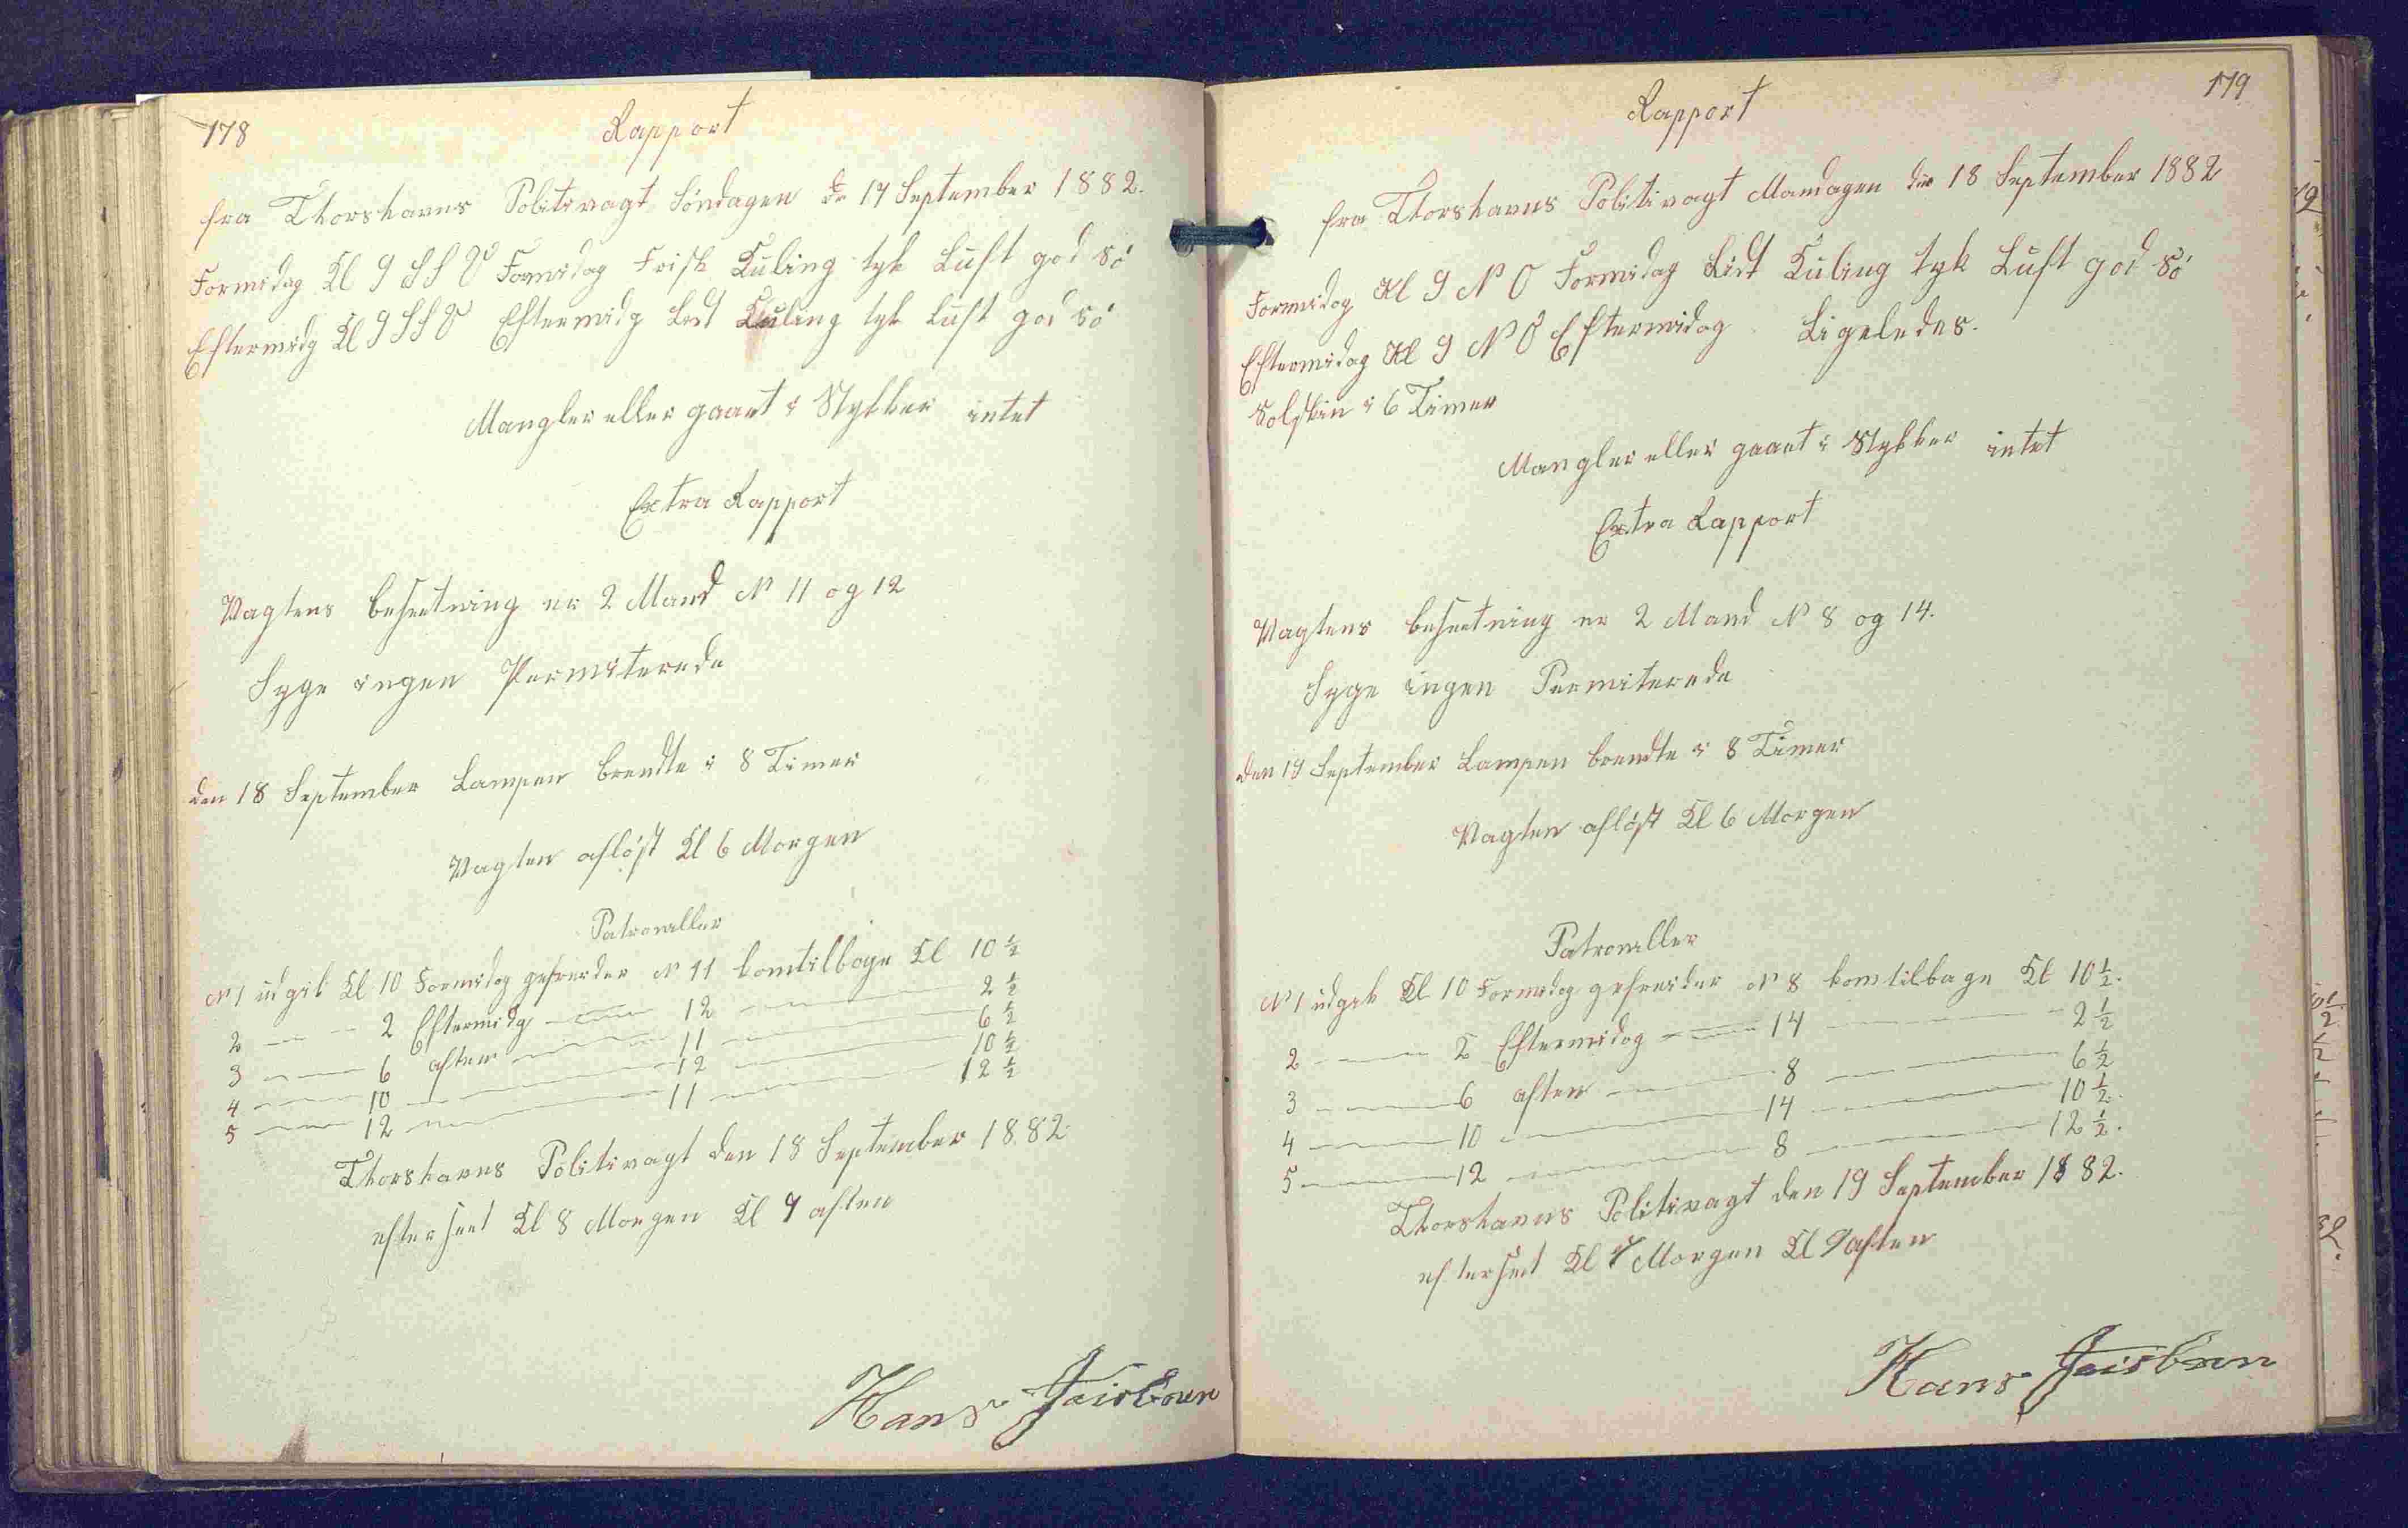 178
Rapport
fra Thorshavns Politivagt Söndagen d 17 September 1882.
Formidag Kl 9 SSV Formidag Frisk Kuling tyk Luft god Sö
Eftermidg Kl 9 SSV Eftermidg Lidt Kuling tyk luft god Sö
Mangler eller gaaet i Stykker intet
Extra Rapport
Vagtens besætning er 2 Mand N 11 og 12
Syge ingen Permiterede
den 18 September Lampen brendte i 8 Timer
Vagten aflöst Kl 6 Morgen
Patrouller
N 1 udgik Kl 10 Formidag gefreider N 11 komtilbage Kl 10 ½
2 — — 2 Eftermidg — 12 — 2 ½
3 — — 6 aften — 11 — 6 ½
4 — — 10 — 12 — 10 ½
5 — — 12 — 11 — 12 ½
Thorshavns Politivagt den 18 September 1882
efterseet Kl 8 Morgen Kl 7 aften
Hans
179
Rapport
fra Thorshavns Politivagt Mandagen den 18 September 1882
Formidag Kl 9 N O Formidag Lidt Kuling tyk Luft god Sö
Eftermidag Kl 9 N O Eftermidag Ligeledes.
Solskin i 6 Timer
Mangler eller gaaet i Stykker intet
Extra Rapport
Vagtens besætning er 2 Mand N 8 og 14.
Syge ingen Permiterede
den 19 September Lampen brendte i 8 Timer
Vagten aflöst Kl 6 Morgen
Patrouller
N 1 udgik Kl 10 Formidag gefreider N 8 komtilbage Kl 10 ½.
2 — — 2 Eftermidag — 14 — 2 ½
3 — — 6 aften — 8 — 6 ½
4 — — 10 — 14 — 10 ½.
5 — — 12 — 8 — 12 ½.
Thorshavns Politivagt den 19 September 1882.
efterseet Kl 7 Morgen Kl 9 aften
Hans